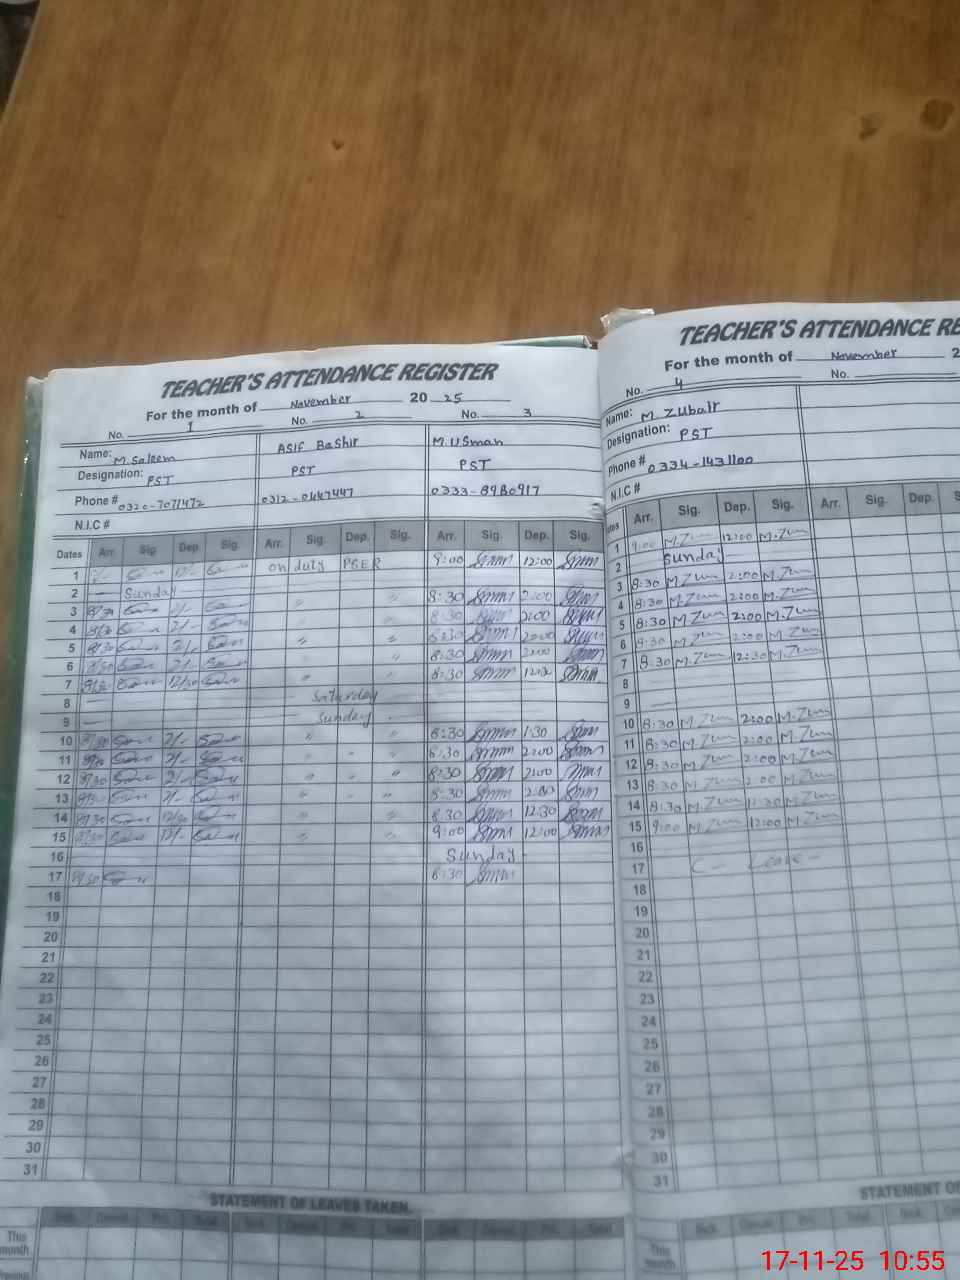 TEACHER'S ATTENDANCE REGISTER
For the month of November 20 25
No. 1 No. 2 No. 3
Name: M. Saleem ASIF Bashir M. USman
Designation: PST PST PST
Phone # 0320-7071472 0312-0447447 0333-8980917
N.I.C #
Dates Arr. Sig. Dep. Sig. Arr. Sig. Dep. Sig. Arr. Sig. Dep. Sig.
1 on duty PSER 9:00 12:00
2 Sunday
3 8/30 2/- 8:30 2:00
4 8/30 2/- 8:30 2:00
5 8/30 2/- 8:30 2:00
6 8/30 2/- 8:30 2:00
7 8/30 12/30 8:30
8 Saturday
9 Sunday
10 8/30 2/- 8:30 1:30
11 8/30 2/- 8:30 2:00
12 8/30 2/- 8:30 2:00
13 8/30 2/- 8:30 2:00
14 8/30 12/30 8:30 12:30
15 8/30 12/- 9:00 12:00
16 Sunday
17 8/30 8:30
18
19
20
21
22
23
24
25
26
27
28
29
30
31
STATEMENT OF LEAVES TAKEN
Sick. Casual Pri. Total. Sick. Casual Pri. Total Sick. Casual Pri. Total.
This month.
TEACHER'S ATTENDANCE RE
For the month of November 2
No. 4 No.
Name: M. ZUbair
Designation: PST
Phone # 0334-1431100
N.I.C #
ates Arr. Sig. Dep. Sig. Arr. Sig. Dep. S
1 9:00 12:00
2 Sunday
3 8:30 2:00
4 8:30 2:00
5 8:30 2:00
6 8:30 2:00
7 8:30 12:30
8
9
10 8:30 2:00
11 8:30 2:00
12 8:30 2:00
13 8:30 2:00
14 8:30 12:30
15 9:00 12:00
16
17 C- Leave-
18
19
20
21
22
23
24
25
26
27
28
29
30
31
STATEMENT O
Sick. Casual Pri. Total Sick.
This month
17-11-25 10:55